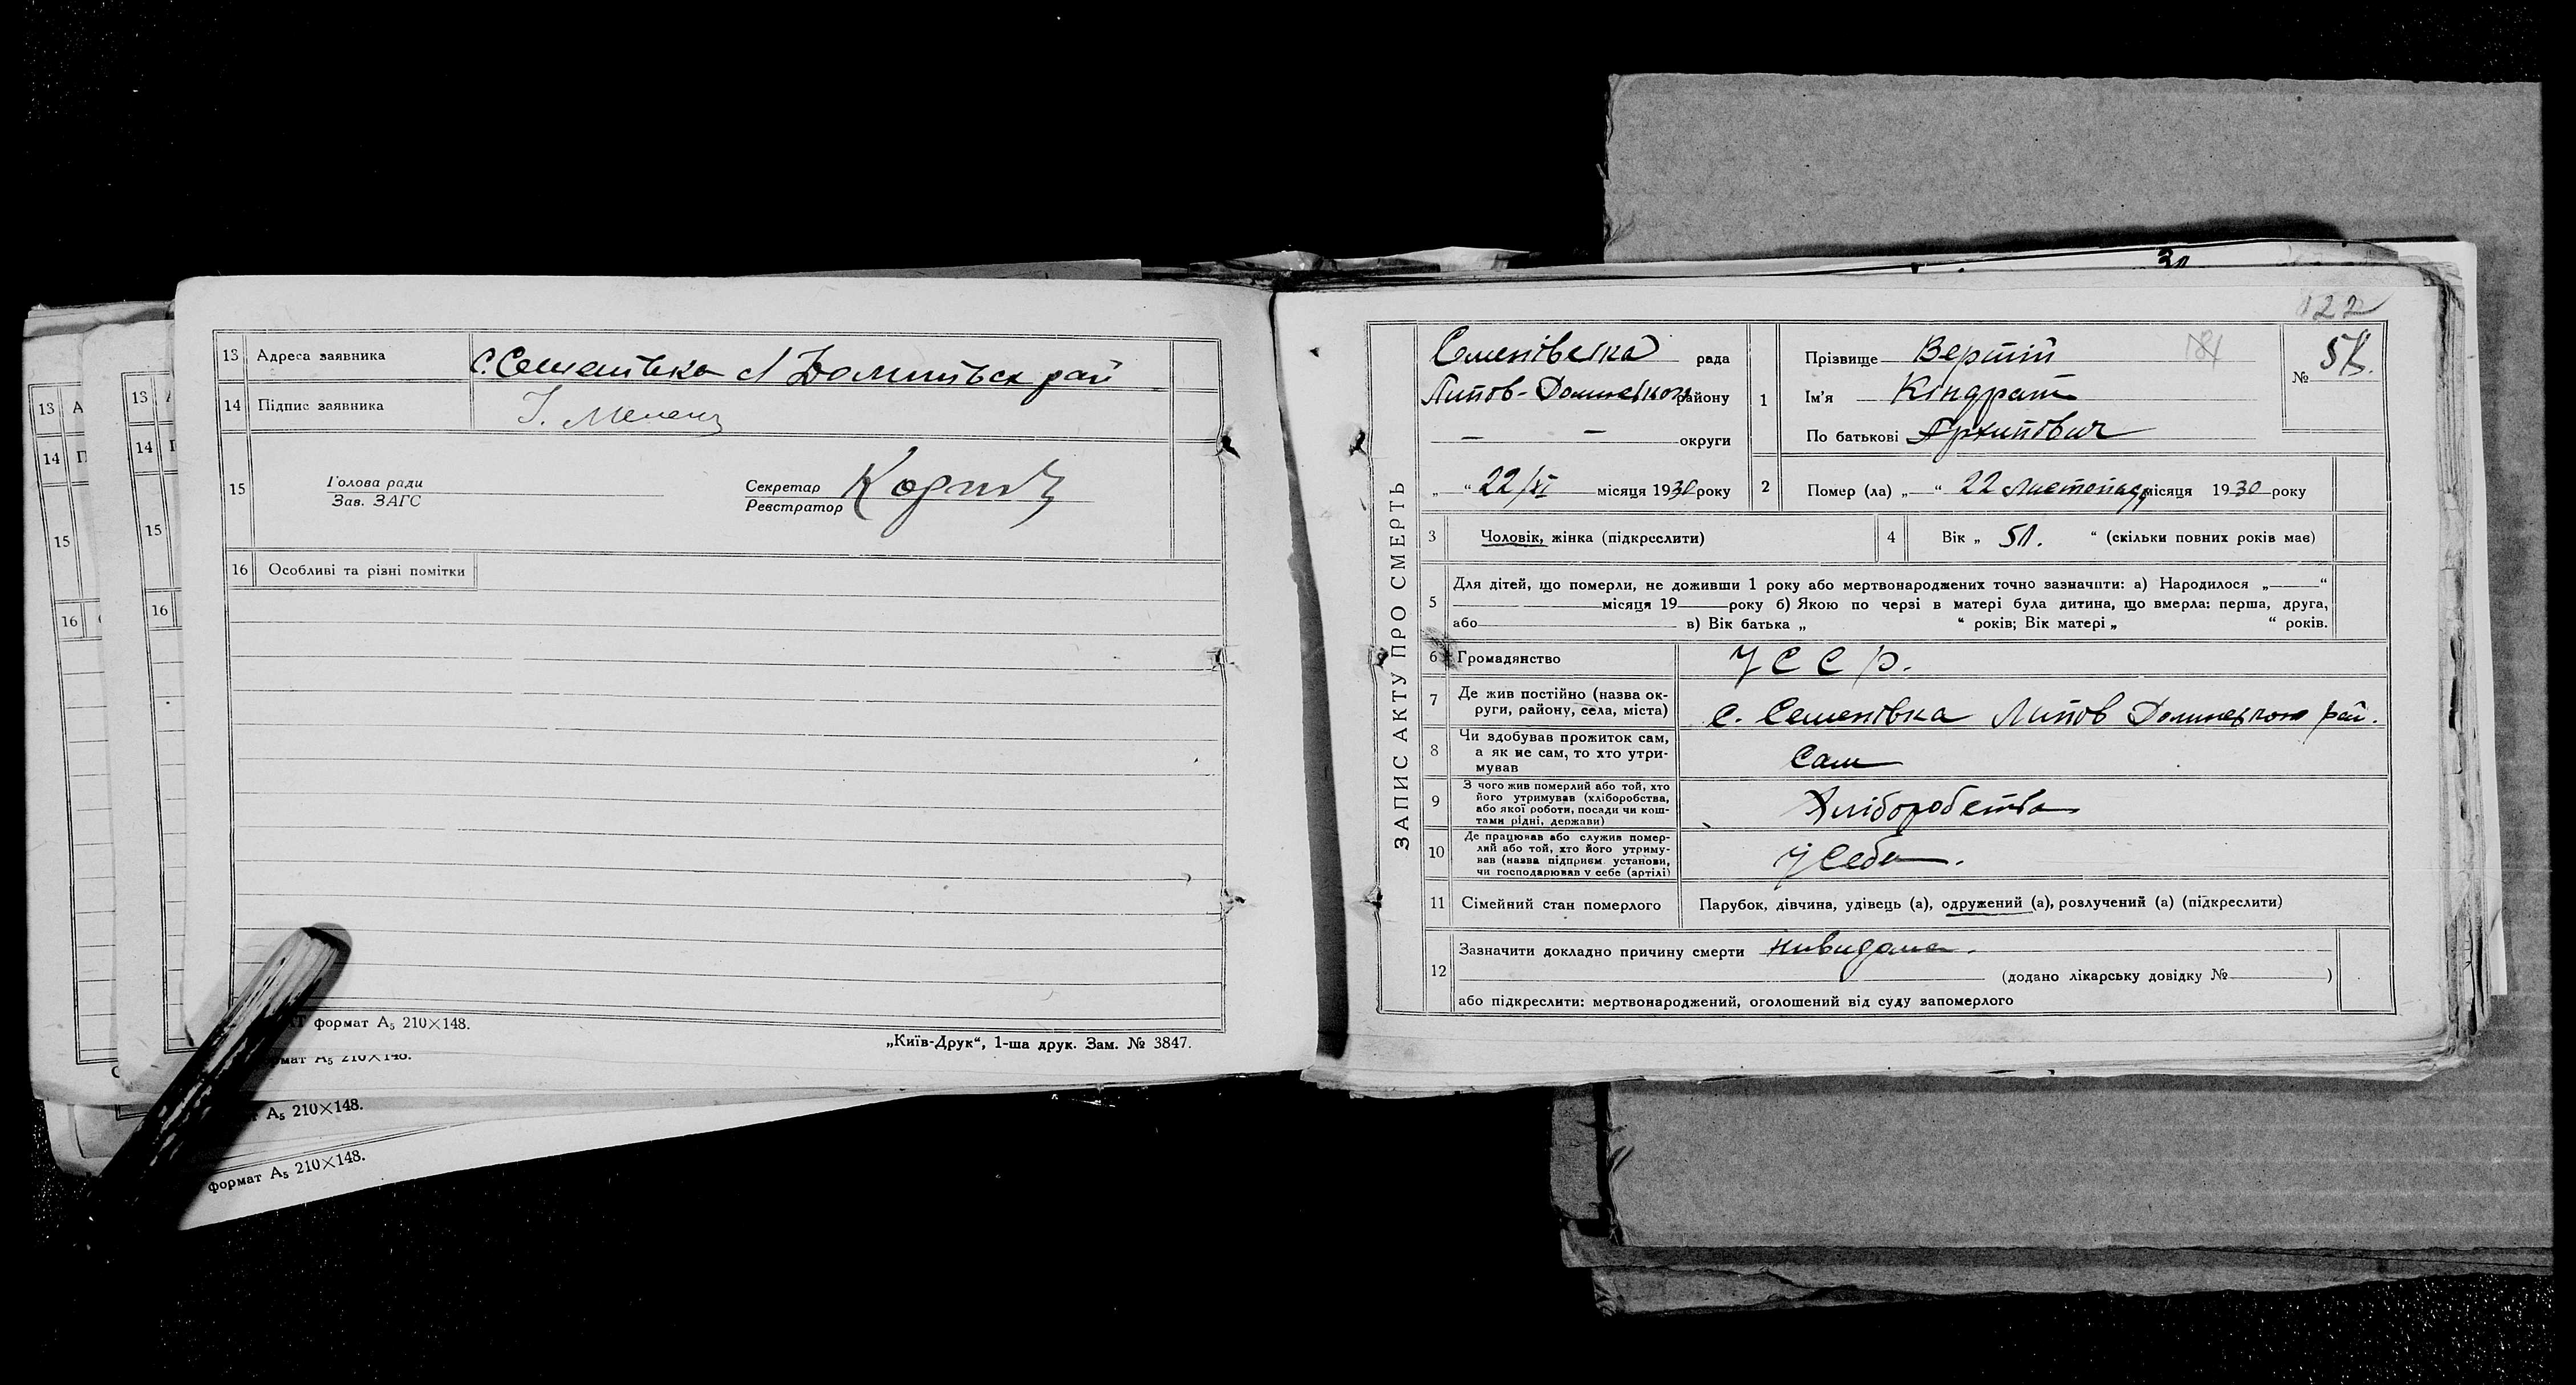 13 Адреса заявника С. Семенівка Л Долинськ рай
14 Підпис заявника І. Мелени
15 Голова ради
Зав. ЗАГС
Секретар
Реєстратор
16 Особливі та різні помітки
формат А₅ 210×148.
„Київ-Друк“, 1-ша друк. Зам. № 3847.
13 А
14 П
15
16
13
14
15
16
формат А₅ 210×148.
А₅ 210×148.
формат А₅ 210×148.
122
ЗАПИС АКТУ ПРО СМЕРТЬ
Семенівська рада
Липов-Долинського району
— — округи
„ “ 22/XI місяця 1930 року
1 Прізвище Вертій
Ім'я Кіндрат
По батькові Архипович
№
2 Помер (ла) „ “ 22 Листопада місяця 1930 року
3 Чоловік, жінка (підкреслити)
4 Вік „ 51. “ (скільки повних років має)
5 Для дітей, що померли, не доживши 1 року або мертвонароджених точно зазначити: а) Народилося „ “
місяця 19 року б) Якою по черзі в матері була дитина, що вмерла: перша, друга,
або в) Вік батька „ “ років; Вік матері „ “ років.
6 Громадянство УССР.
7 Де жив постійно (назва ок-
руги, району, села, міста) с. Семенівка Липов Долинського рай.
8 Чи здобував прожиток сам,
а як не сам, то хто утри-
мував Сам
9 З чого жив померлий або той, хто
його утримував (хліборобства,
або якої роботи, посади чи кош-
тами рідні, держави) Хліборобства
10 Де працював або служив помер-
лий або той, хто його утриму-
вав (назва підприєм. установи,
чи господарював у себе (артілі) У себе.
11 Сімейний стан померлого Парубок, дівчина, удівець (а), одружений (а), розлучений (а) (підкреслити)
12 Зазначити докладно причину смерти нивидома.
(додано лікарську довідку № )
або підкреслити: мертвонароджений, оголошений від суду запомерлого